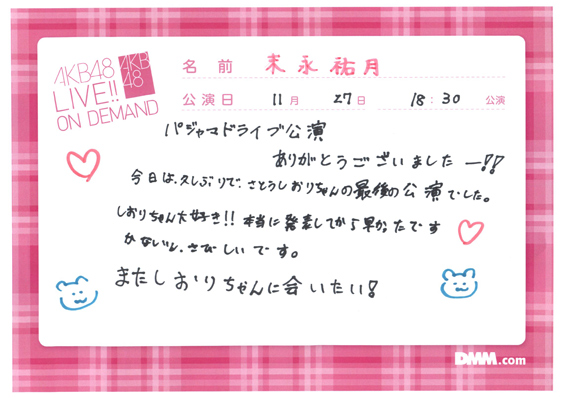 AKB48
LIVE!!
ON DEMAND
AKB
48
名前 末永祐月
公演日 11月 27日 18:30 公演
パジャマドライブ公演
ありがとうございましたー!!
今日は、久しぶりで、さとうしおりちゃんの最後の公演でした。
しおりちゃん大好き!! 本当に発表してから早かったです
かなしい、さびしいです。
またしおりちゃんに会いたい!
DMM.com